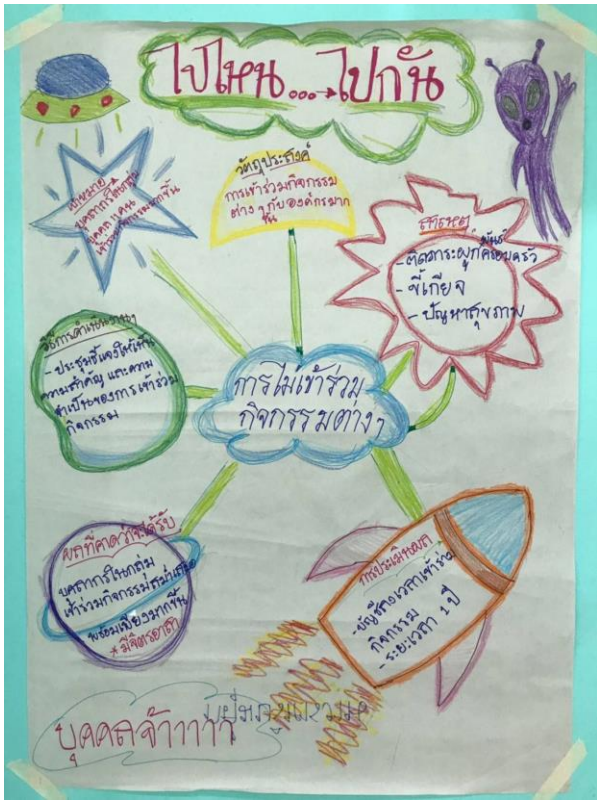 ไปไหน...→ไปกัน
เป้าหมาย
บุคลากรในกลุ่ม
เข้าร่วมกิจกรรมมากขึ้น
วัตถุประสงค์
การเข้าร่วมกิจกรรม
ต่างๆกับองค์กรมาก
ขึ้น
สาเหตุ
- ติดภาระผูกพันธ์ครอบครัว
- ขี้เกียจ
- ปัญหาสุขภาพ
วิธีการดำเนินงาน
- ประชุมชี้แจงให้เห็น
ความสำคัญ และความ
จำเป็นของการเข้าร่วม
กิจกรรม
การไม่เข้าร่วม
กิจกรรมต่างๆ
ผลที่คาดว่าจะได้รับ
บุคลากรในกลุ่ม
เข้าร่วมกิจกรรมสม่ำเสมอ
พร้อมเพียงมากขึ้น
* มีจิตรอาสา
การประเมินผล
- บัญชีลงเวลาเข้าร่วม
กิจกรรม
- ระยะเวลา 1 ปี
บุคคลจ้าาาาา